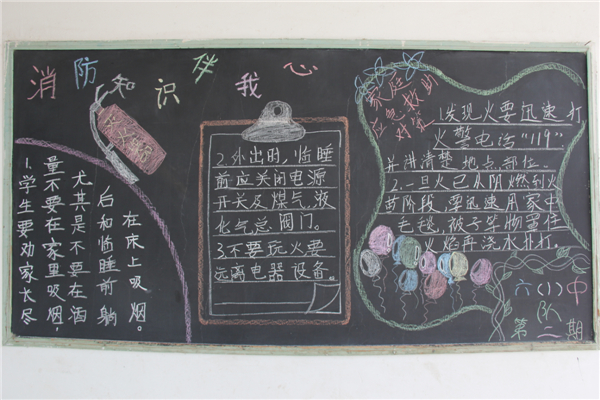 消防知识伴我心
1.学生要劝家长尽
量不要在家里吸烟,
尤其是不要在酒
后和临睡前躺
在床上吸烟。
灭火器
2.外出时,临睡
前应关闭电源
开关及煤气、液
化气总阀门。
3.不要玩火要
远离电器设备。
家庭
应急救助
对策
1.发现火要迅速打
火警电话“119”
并讲清楚地点、部位。
2.一旦火已从阴燃到火
苗阶段,要迅速用家中
毛毯,被子等物罩住
火焰再浇水扑打。
六(1)中
队
第二期